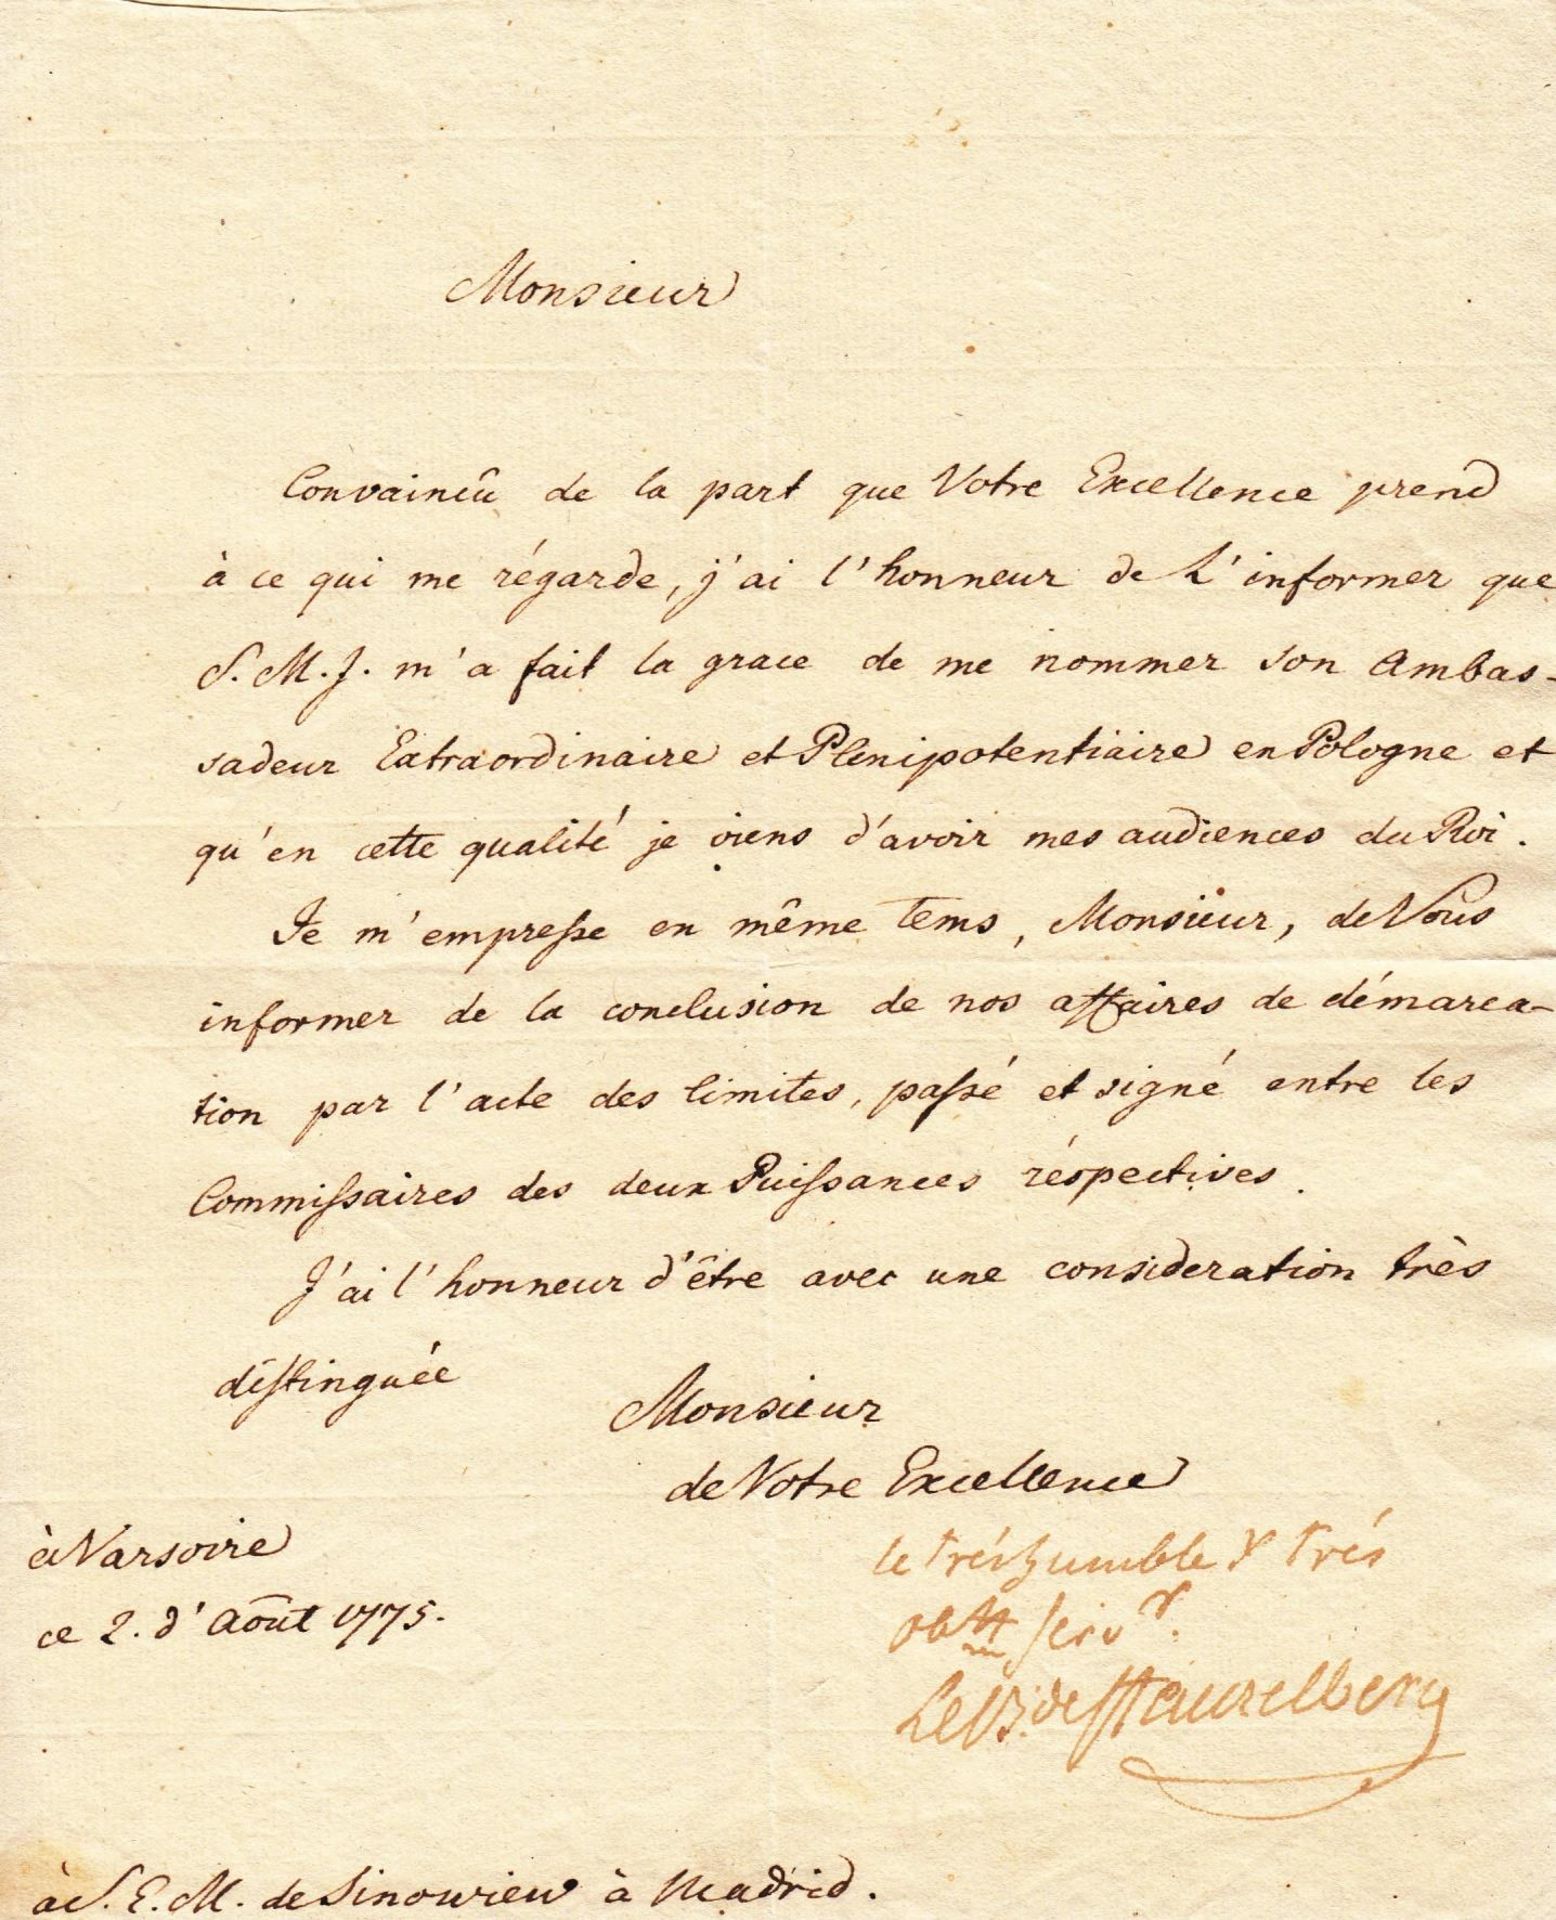 Monsieur
Convaincû de la part que Votre Excellence prend
à ce qui me régarde, j'ai l'honneur de L'informer que
S. M. J. m'a fait la grace de me nommer son Ambas-
sadeur Extraordinaire et Plenipotentiaire en Pologne et
qu'en cette qualité je viens d'avoir mes audiences du Roi.
Je m'empresse en même tems, Monsieur, de Vous
informer de la conclusion de nos affaires de démarca-
tion par l'acte des limites, passé et signé entre les
Commissaires des deux Puissances réspectives.
J'ai l'honneur d'être avec une consideration très
distinguée
Monsieur
de Votre Excellence
à Varsovie
ce 2. d'Août 1775.
le trés humble & trés
obtt servr.
Le B. de Stackelberg
à S. E. M. de Sinowiew à Madrid.